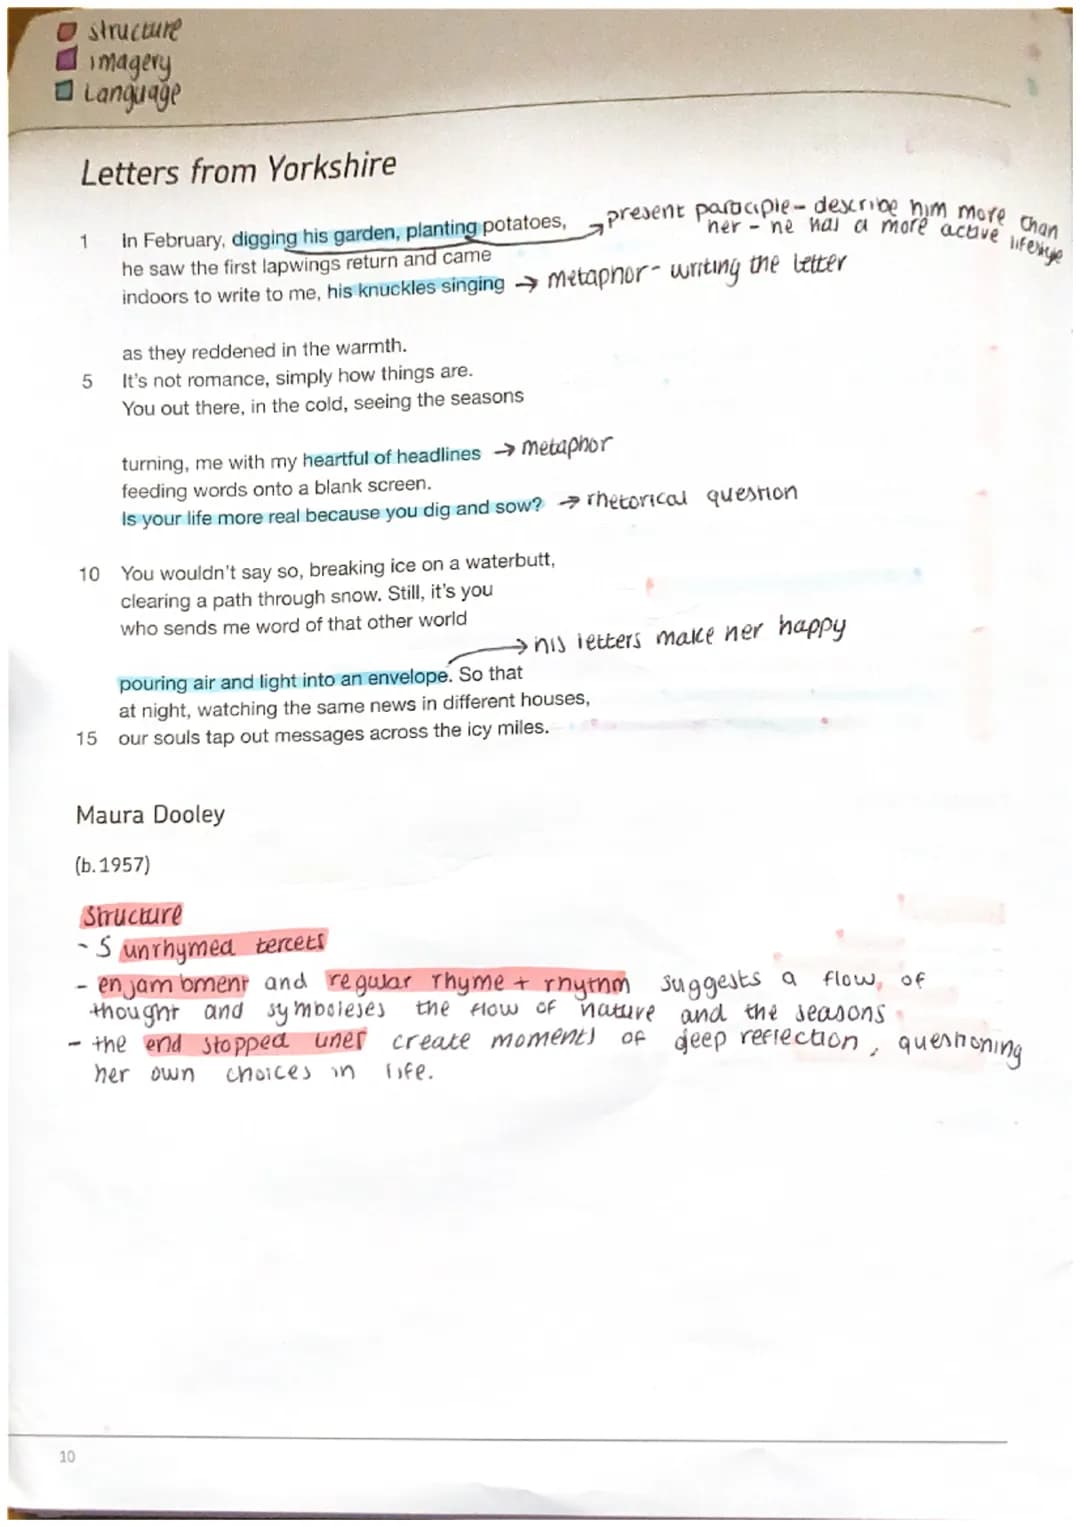 structure
imagery
Language
Letters from Yorkshire
present participle- describe him more than
her - he has a more active lifestyle
1 In February, digging his garden, planting potatoes,
he saw the first lapwings return and came
indoors to write to me, his knuckles singing → metaphor- writing the letter
as they reddened in the warmth.
5 It's not romance, simply how things are.
You out there, in the cold, seeing the seasons
turning, me with my heartful of headlines → metaphor
feeding words onto a blank screen.
Is your life more real because you dig and sow? → rhetorical question
10 You wouldn't say so, breaking ice on a waterbutt,
clearing a path through snow. Still, it's you
who sends me word of that other world
→ his letters make her happy
pouring air and light into an envelope. So that
at night, watching the same news in different houses,
15 our souls tap out messages across the icy miles.
Maura Dooley
(b.1957)
Structure
- 5 unrhymed tercets
- enjambment and regular rhyme + rhythm suggests a flow, of
thought and symboleses the flow of nature and the seasons
- the end stopped lines create moments of deep reflection, questioning
her own choices in life.
10